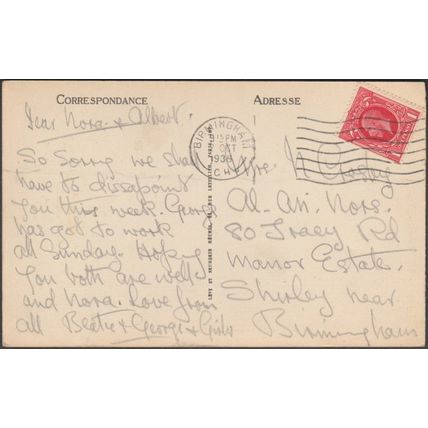 CORRESPONDANCE
ADRESSE
Dear Nora & Albert,
So Sorry we shall
have to dissapoint
you this week. George
has got to work
all Sunday. Hoping
you both are well
and Nora. Love from
all Beatie & George & Girls
BIRMINGHAM
15 PM
OCT
1936
Mrs. N
Al. An. Nors.
80 Tracey Rd
Manor Estate.
Shirley near
Birmingham